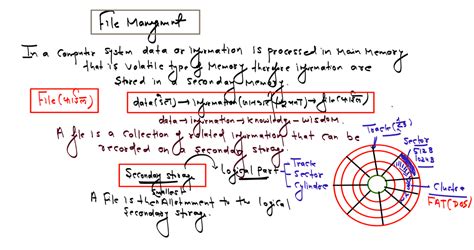 File Managment
In a computer system data or information is processed in main memory
that is volatile type of memory therefore information are
stored in a secondary memory.
File (फाईल)
data (डेटा) → information (जानकारी / सूचना) → file (फाईल)
data - information - knowledge - wisdom.
A file is a collection of related information that can be
recorded on a secondary storage.
Secondary storage → Logical part -
Track
Sector
Cylinder
smallest
A file is the allotnment to the logical
secondary storage.
Track
Sector
512B
1024B
Cluster
FAT (DOS)